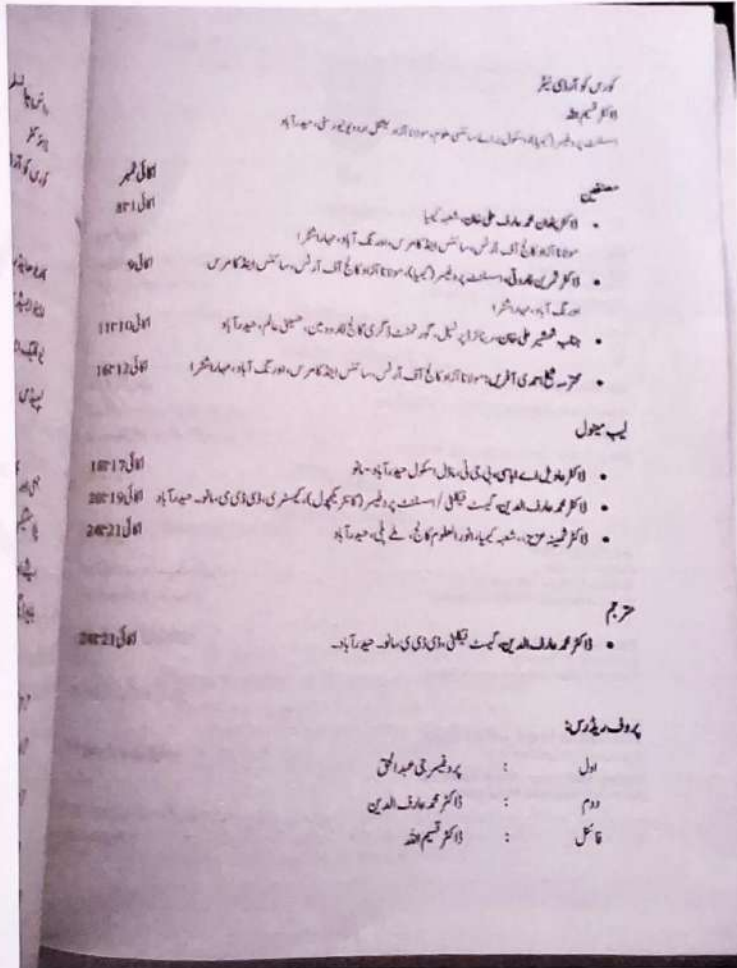 کورس کوآرڈی نیٹر
ڈاکٹر قسیم اللہ
اسسٹنٹ پروفیسر (کیمیا)، اسکول برائے سائنسی علوم، مولانا آزاد نیشنل اردو یونیورسٹی، حیدرآباد
مصنفین
اکائی نمبر
• ڈاکٹر محمد عارف علی خان، شعبہ کیمیا
اکائی 1 تا 8
مولانا آزاد کالج آف آرٹس، سائنس اینڈ کامرس، اورنگ آباد، مہاراشٹرا
• ڈاکٹر ثمرین فاروقی، اسسٹنٹ پروفیسر (کیمیا)، مولانا آزاد کالج آف آرٹس، سائنس اینڈ کامرس
اکائی 9
اورنگ آباد، مہاراشٹرا
• جناب شمشیر علی خان، ریٹائرڈ پرنسپل، گورنمنٹ ڈگری کالج فار ویمن، حسینی عالم، حیدرآباد
اکائی 10 تا 11
• محترمہ شیخ احمدی آفرین، مولانا آزاد کالج آف آرٹس، سائنس اینڈ کامرس، اورنگ آباد، مہاراشٹرا
اکائی 12 تا 16
لیب مینول
• ڈاکٹر ماڈل اسکول حیدرآباد - مانو
اکائی 17 تا 18
• ڈاکٹر محمد عارف الدین، گیسٹ فیکلٹی / اسسٹنٹ پروفیسر (کانٹریکچول)، کیمسٹری، ڈی ڈی ای، مانو۔ حیدرآباد
اکائی 19 تا 20
• ڈاکٹر ثمینہ عزیز، شعبہ کیمیا، انوار العلوم کالج، ملے پلی، حیدرآباد
اکائی 21 تا 24
مترجم
• ڈاکٹر محمد عارف الدین، گیسٹ فیکلٹی، ڈی ڈی ای مانو۔ حیدرآباد۔
اکائی 21 تا 24
پروف ریڈرس:
اول : پروفیسر جی عبدالحق
دوم : ڈاکٹر محمد عارف الدین
فائنل : ڈاکٹر قسیم اللہ